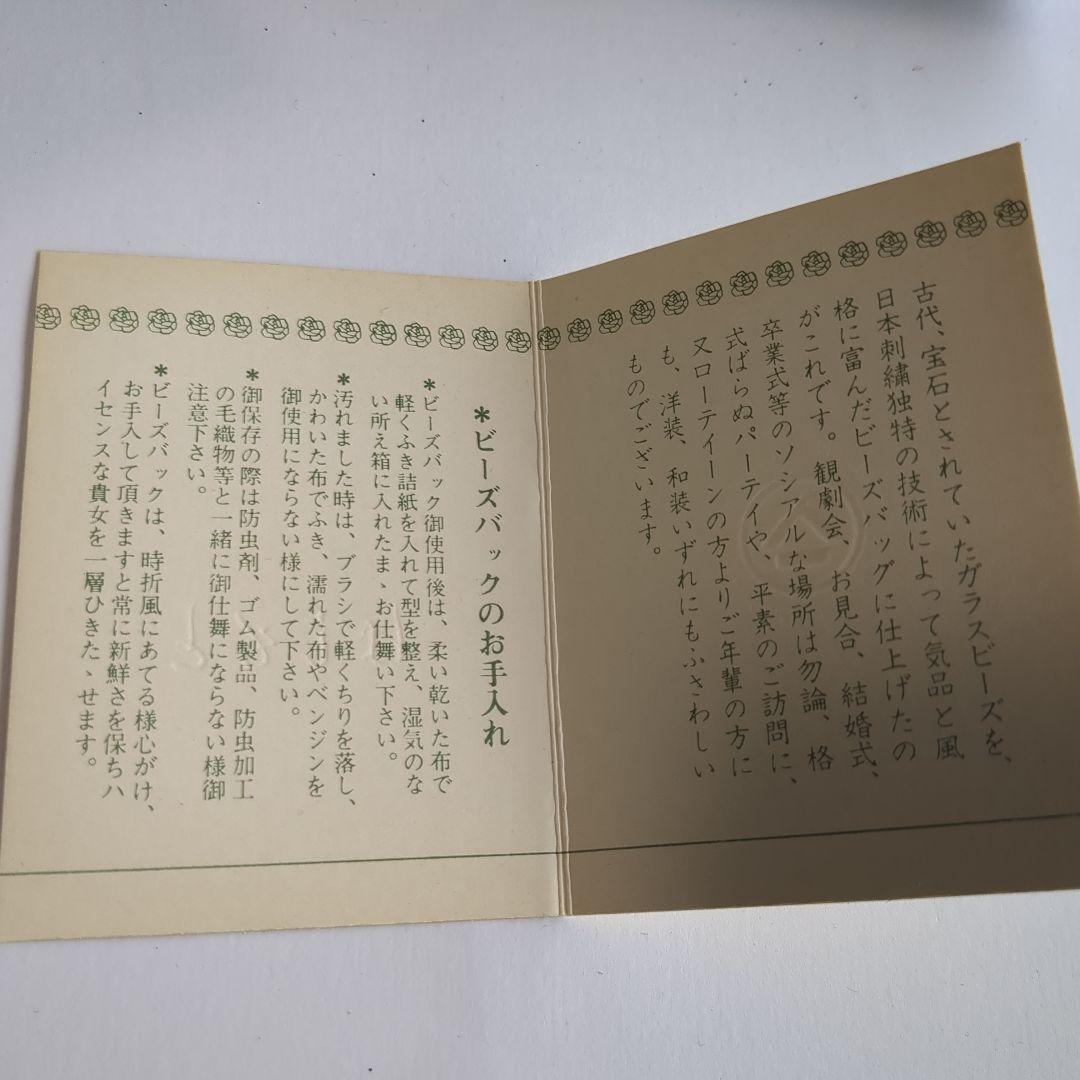 古代、宝石とされていたガラスビーズを、
日本刺繍独特の技術によって気品と風
格に富んだビーズバッグに仕上げたの
がこれです。観劇会、お見合、結婚式、
卒業式等のソシアルな場所は勿論、格
式ばらぬパーティや、平素のご訪問に、
又ローティーンの方よりご年輩の方に
も、洋装、和装いずれにもふさわしい
ものでございます。
*ビーズバックのお手入れ
*ビーズバック御使用後は、柔い乾いた布で
軽くふき詰紙を入れて型を整え、湿気のな
い所え箱に入れたまゝお仕舞い下さい。
*汚れました時は、ブラシで軽くちりを落し、
かわいた布でふき、濡れた布やベンジンを
御使用にならない様にして下さい。
*御保存の際は防虫剤、ゴム製品、防虫加工
の毛織物等と一緒に御仕舞にならない様御
注意下さい。
*ビーズバックは、時折風にあてる様心がけ、
お手入して頂きますと常に新鮮さを保ちハ
イセンスな貴女を一層ひきたゝせます。